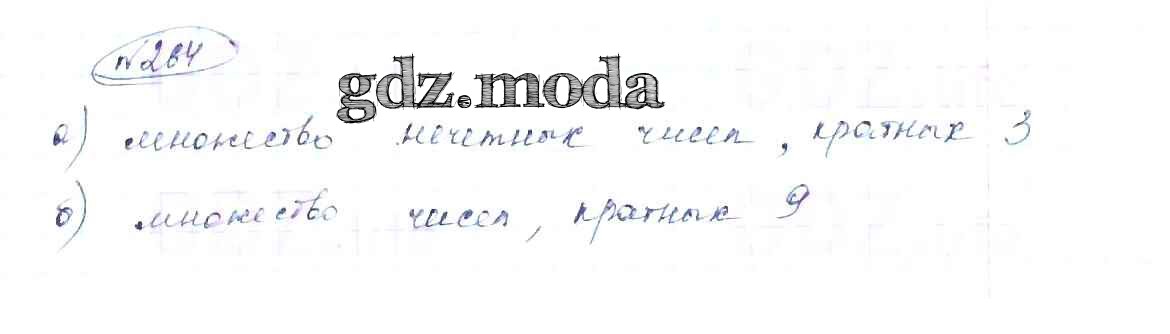 №264
gdz.moda
а) множество нечетных чисел, кратных 3
б) множество чисел, кратных 9